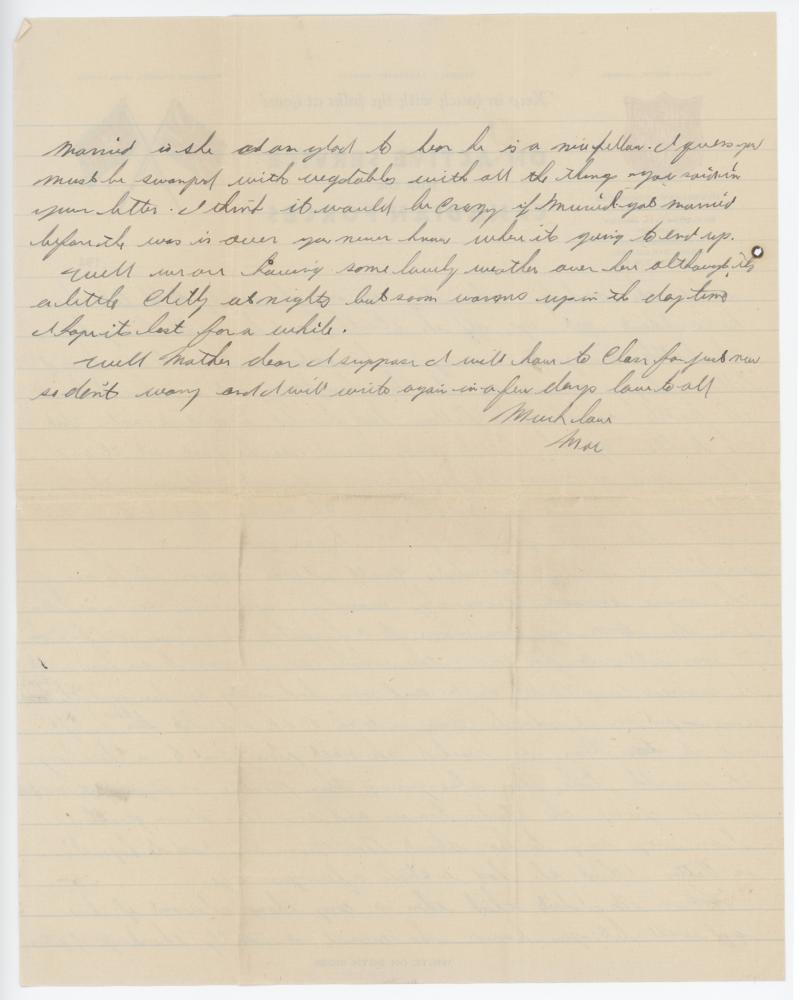 married is she and am glad to hear he is a nice fellow. I guess you
must be swamped with vegetables with all the things you said in
your letter. I think it would be crazy if Muriel got married
before the war is over you never know where its going to end up.
Well we are having some lovely weather over here although its
a little Chilly at nights but soon warms up in the day time
I hope it last for a while.
Well Mother dear I suppose I will have to Close for just now
so don't worry and I will write again in a few days love to all
Much love
Mac